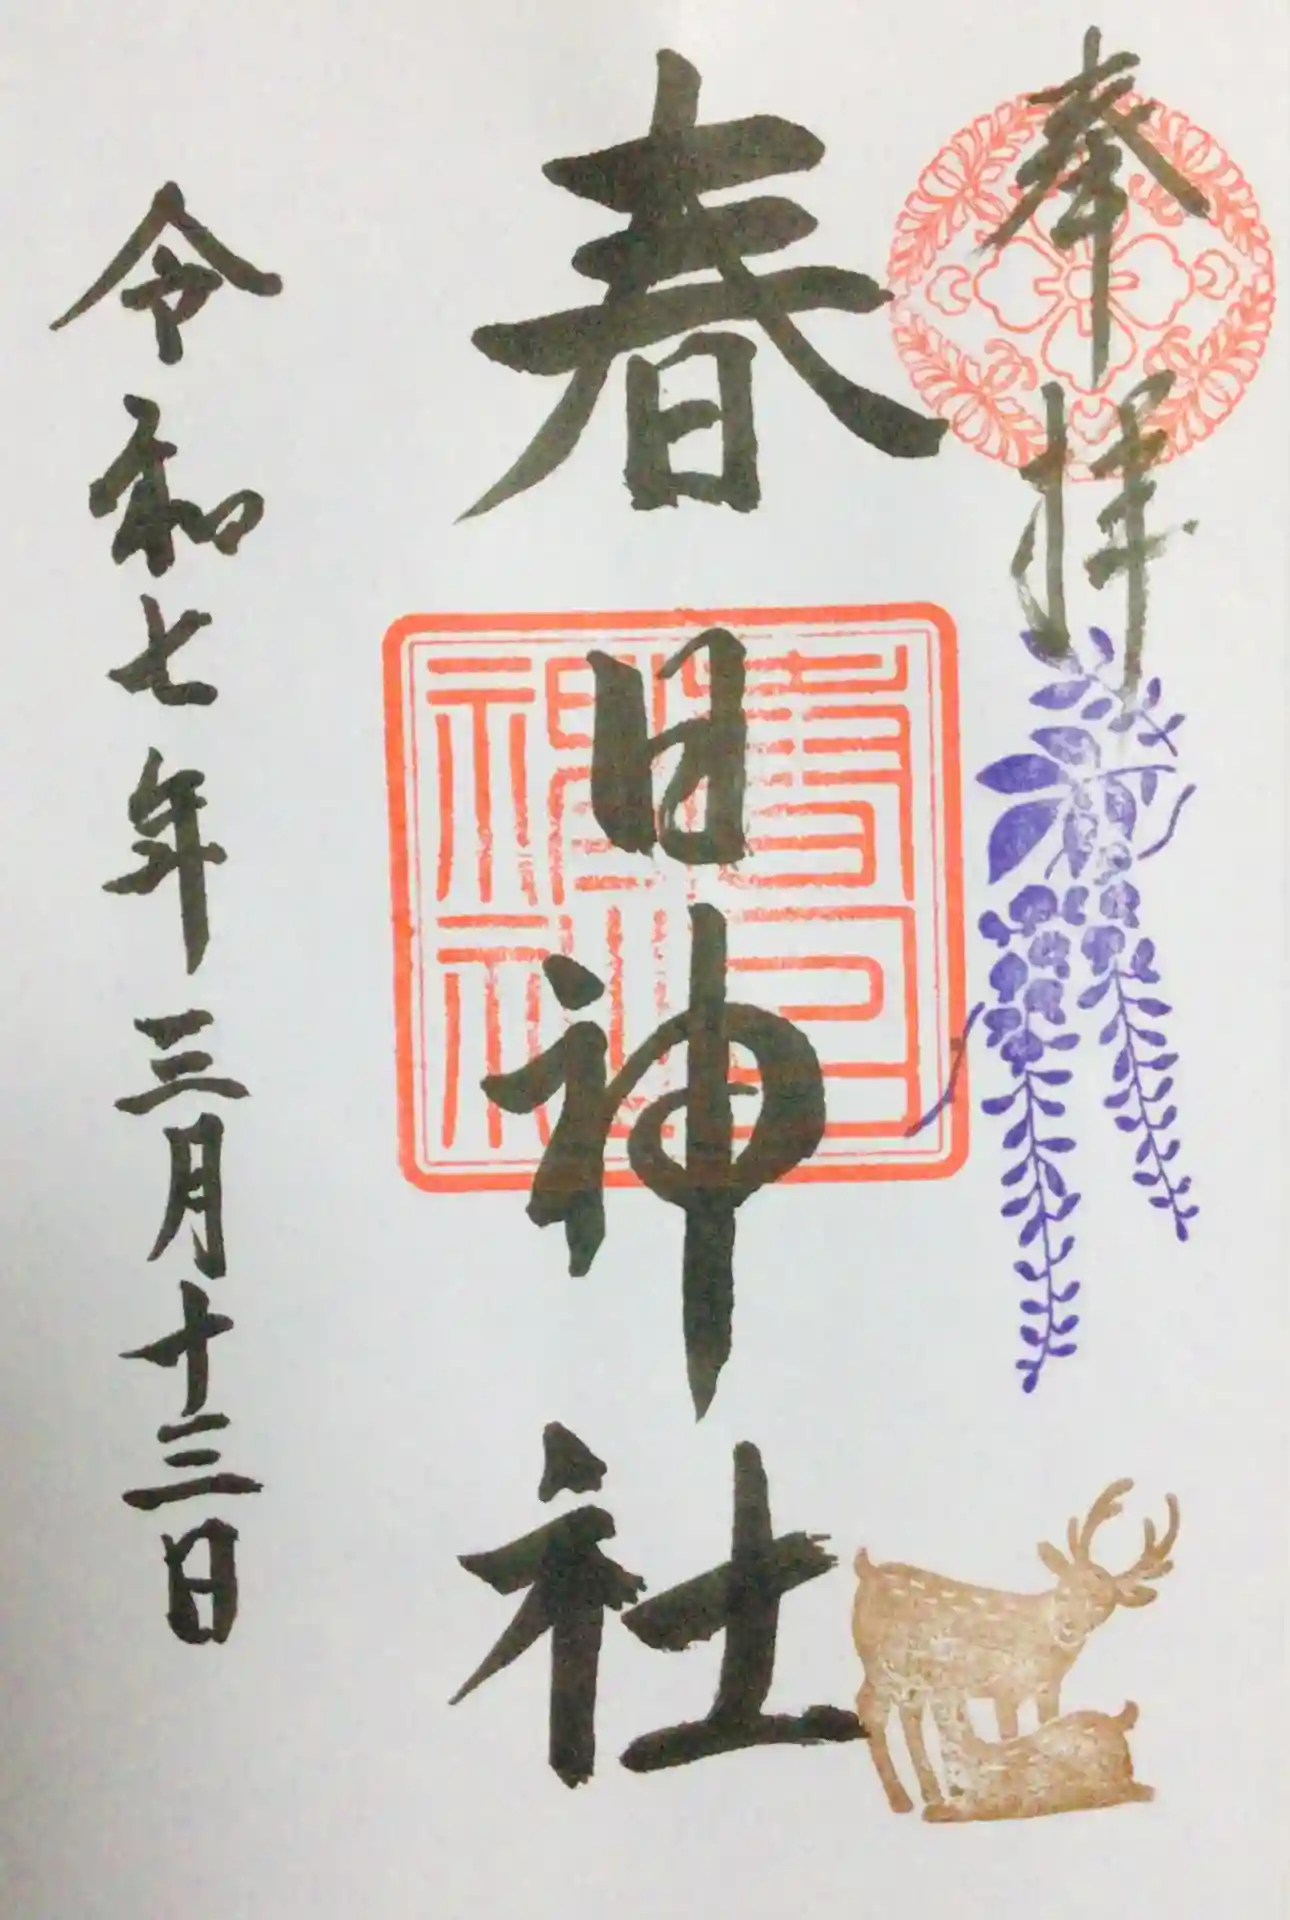 奉拝
春日神社
春日神社
令和七年三月十三日